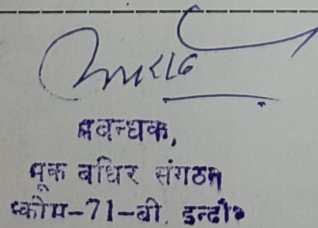 प्रबन्धक,
मूक बधिर संगठन
स्कीम-71-बी, इन्दौर